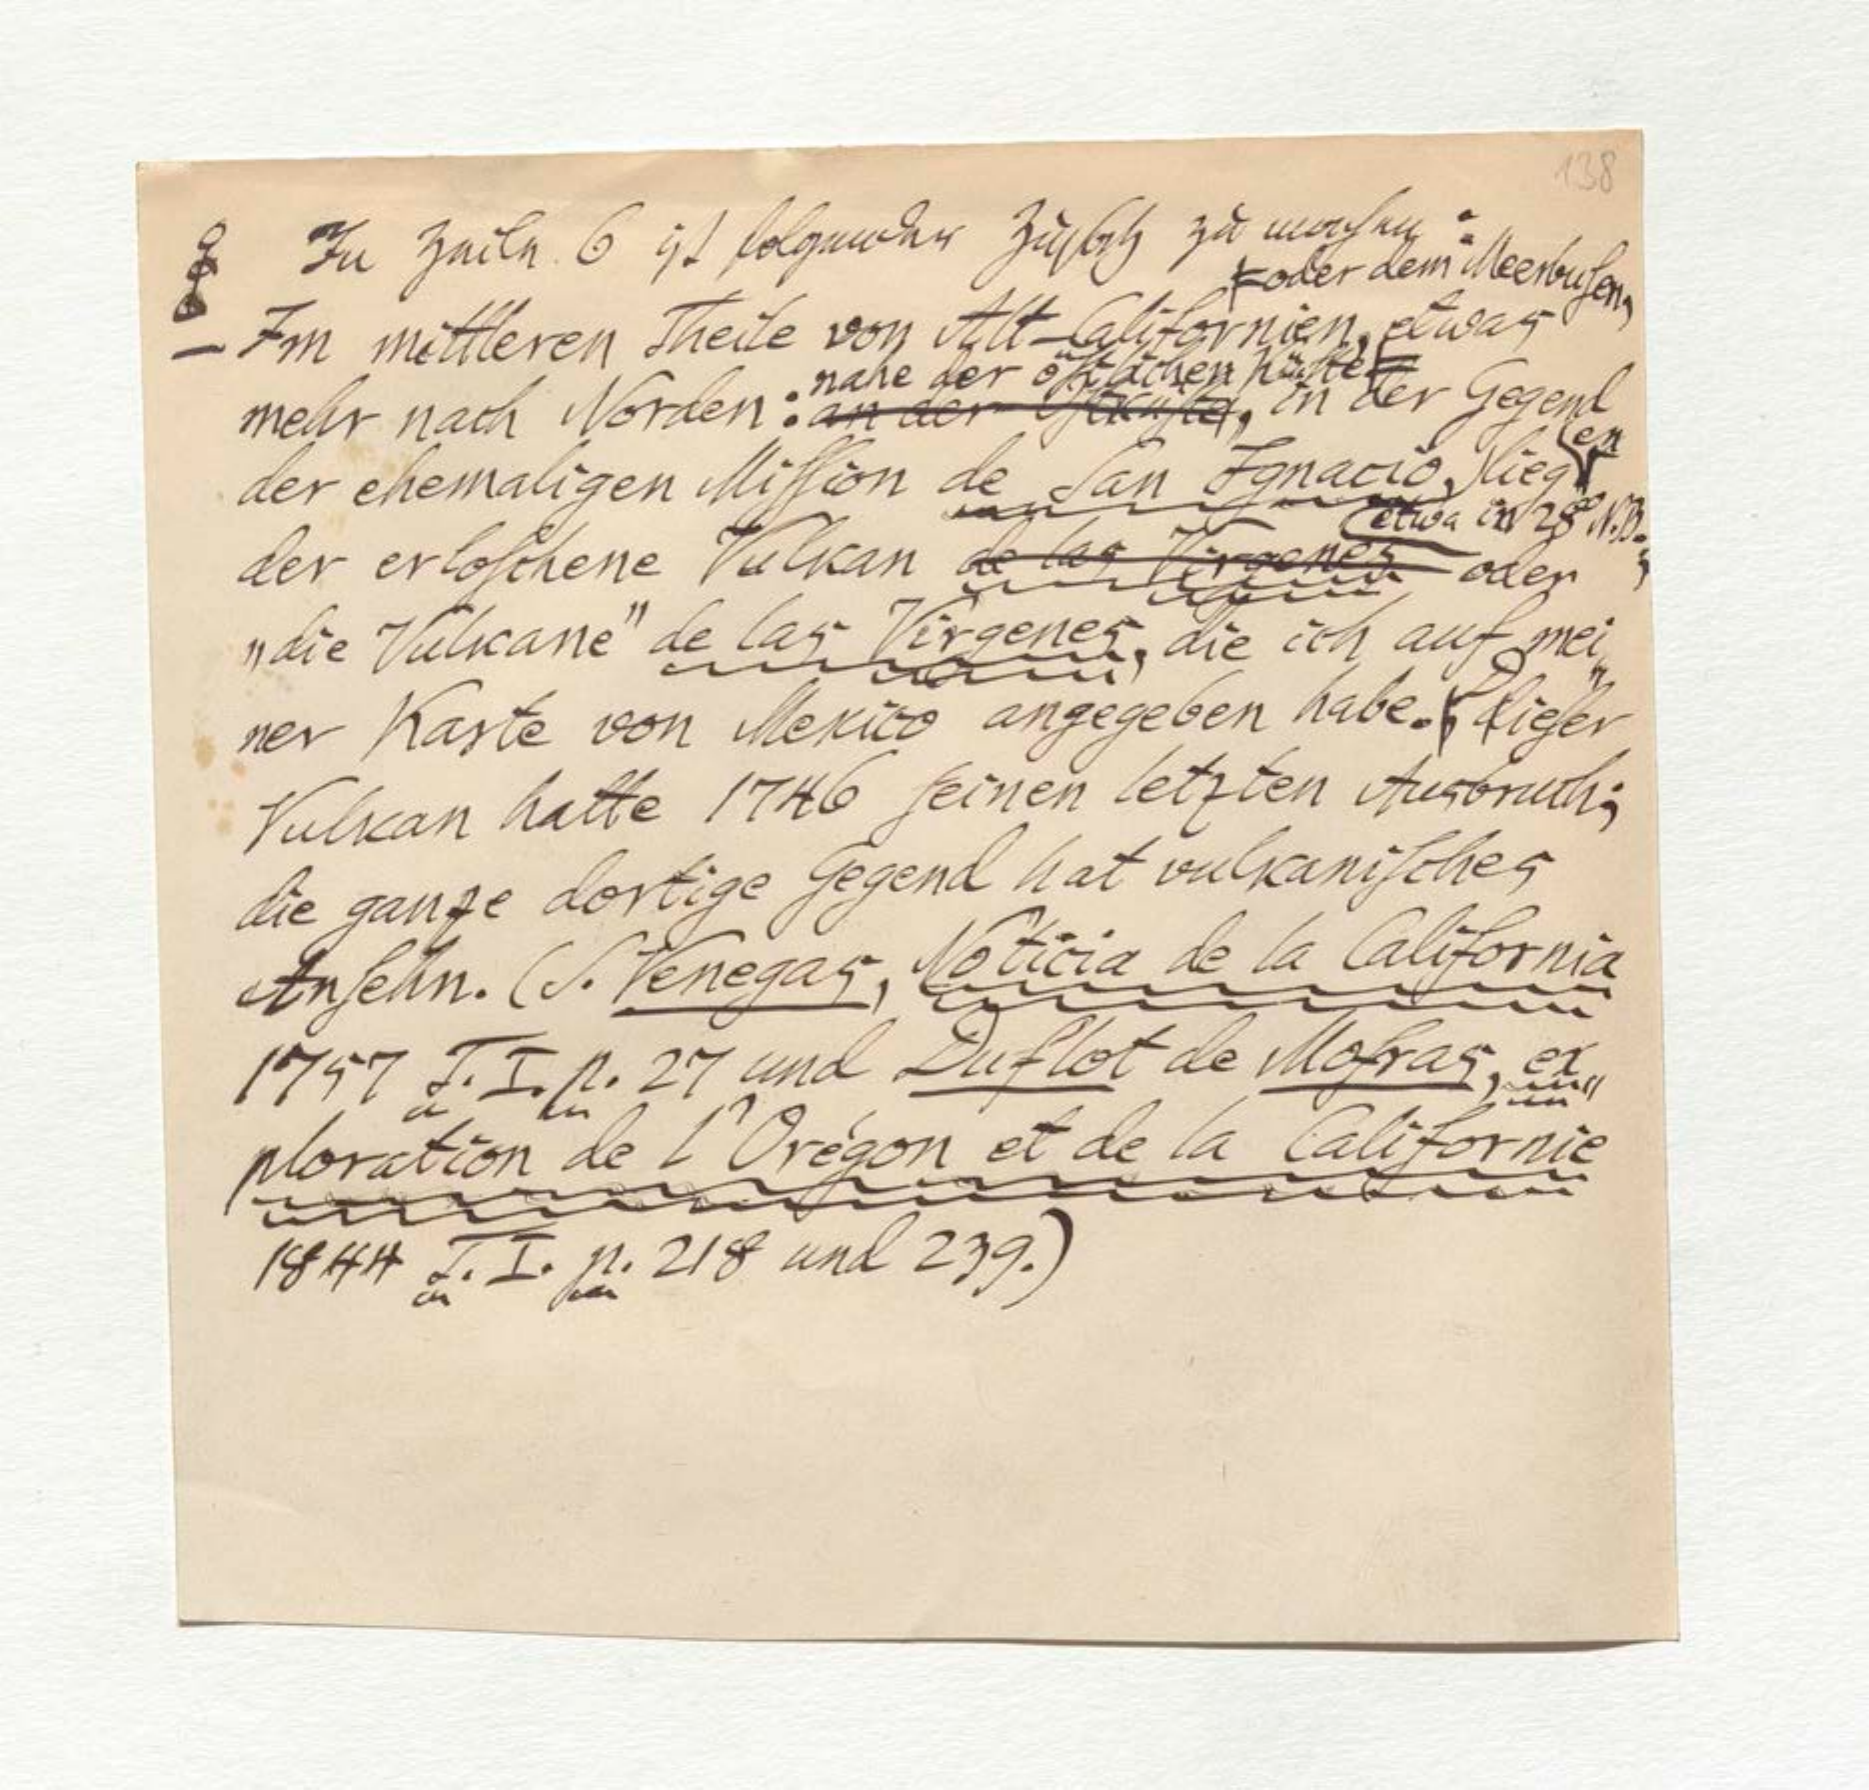 138
In Zeile 6 ist folgender Zusatz zu machen:
oder dem Meerbusen,
— Im mittleren Theile von Alt-Californien, etwas
nahe der östlichen Küste
mehr nach Norden: an der Ostküste, in der Gegend
en
der ehemaligen Mission de San Ignacio, lieg
(etwa in 28° N.B.;
der erloschene Vulkan de las Virgenes oder
„die Vulcane" de las Virgenes, die ich auf mei„
ner Karte von Mexico angegeben habe. Dieser
Vulkan hatte 1746 seinen letzten Ausbruch;
die ganze dortige Gegend hat vulkanisches
Ansehn. (S. Venegas, Noticia de la California
1757 T. I. p. 27 und Duflot de Mofras, ex„
ploration de l'Orégon et de la Californie
1844 T. I. p. 218 und 239.)